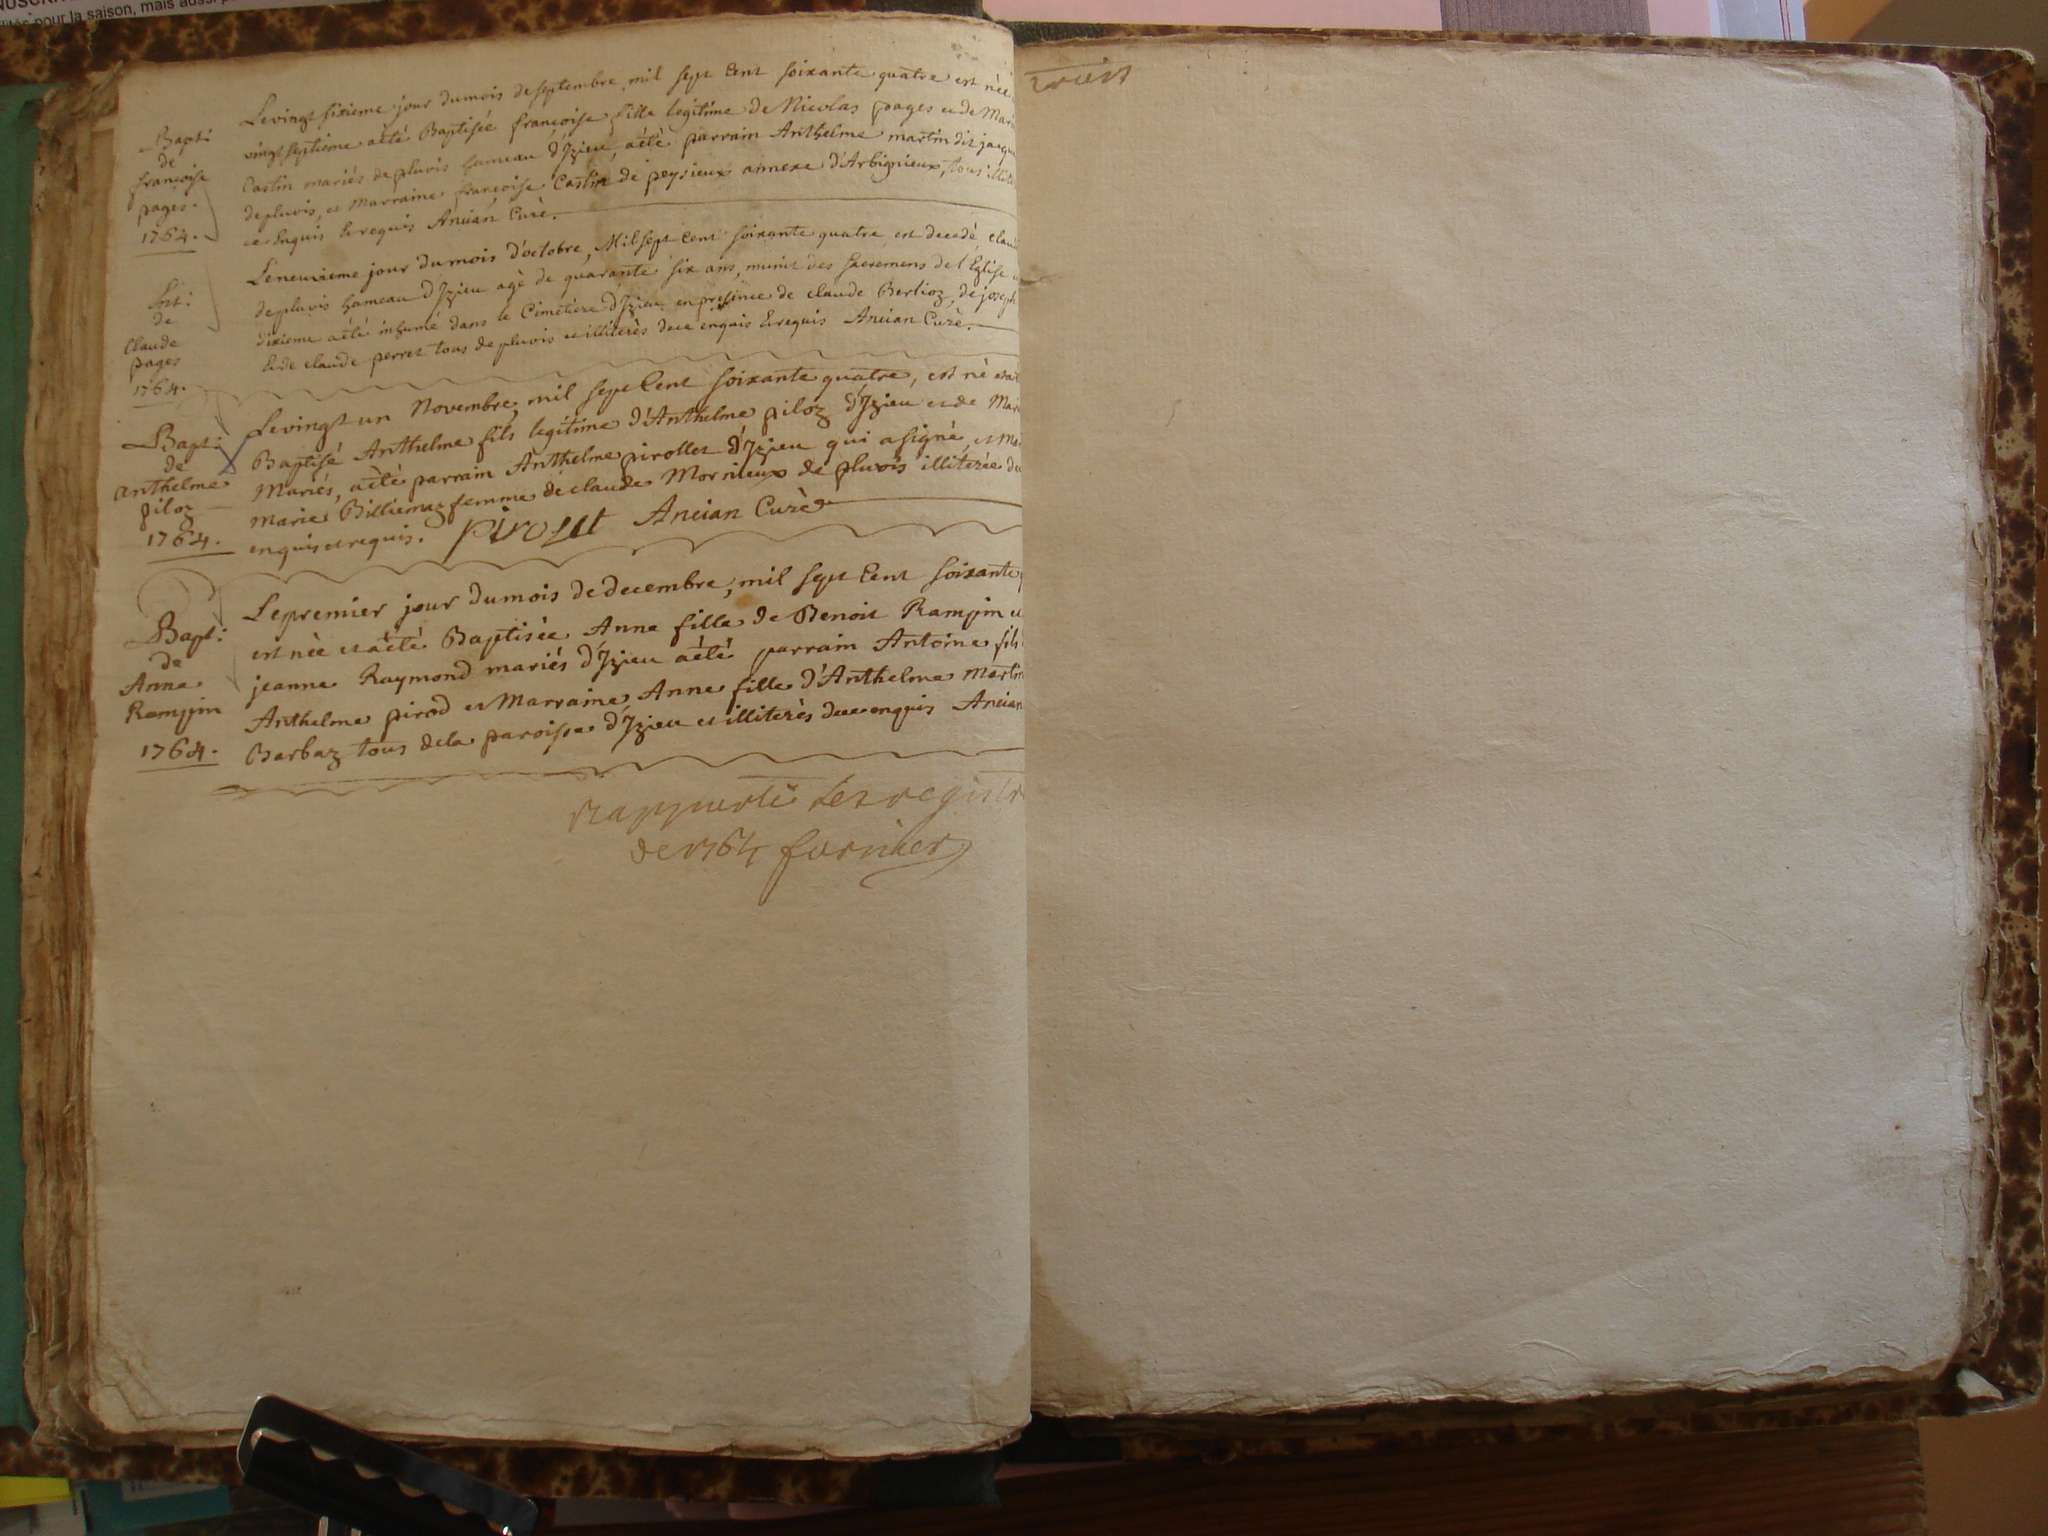 lités pour la saison, mais aussi
Bapt:
de
françoise
pages.
1764.
Le vingt sixieme jour du mois de septembre, mil sept Cent soixante quatre est née
vingt septieme aété Baptisée françoise fille legitime de Nicolas pages et de Marie
Castin mariés de pluvis hameau d'Izieu, aété parrain Anthelme martin dit jacque
de pluvis, et Marraine françoise Castin de peysieux annexe d'Arbignieux, tous
ce Enquis & requis Ancian Curè.
Ent:
de
Claude
pages
1764.
Le neuvieme jour du mois d'octobre, Mil sept Cent soixante quatre, est decedé,
de pluvis hameau d'Izieu agè de quarante six ans, munit des sacremens de l'Eglise
dixieme aété inhumé dans le Cimetiere d'Izieu en presence de claude Berlioz, de joseph
& de claude perret tous de pluvis et illiterès de ce enquis & requis Ancian Curè.
Bapt:
de
Anthelme
piloz
1764.
Le vingt un Novembre, mil sept Cent soixante quatre, est né etat
Baptisé Anthelme fils legitime d'Anthelme piloz d'Izieu et de Mari
Mariés, aété parrain Anthelme pirollet d'Izieu qui a signé, et Ma
marie Billiemaz femme de claude Mornieux de pluvis illiterée de
enquis et requis. Ancian Curè
Bapt:
de
Anne
Rampin
1764.
Le premier jour du mois de decembre, mil sept Cent soixante
est née et aété Baptisée Anne fille de Benoit Rampin et
jeanne Raymond mariés d'Izieu aété parrain Antoine fils
Anthelme pirod et Marraine Anne fille d'Anthelme Martin
Barbaz tous de la paroisse d'Izieu et illiterès de ce enquis Ancian
Rapporté les registr
de 1764